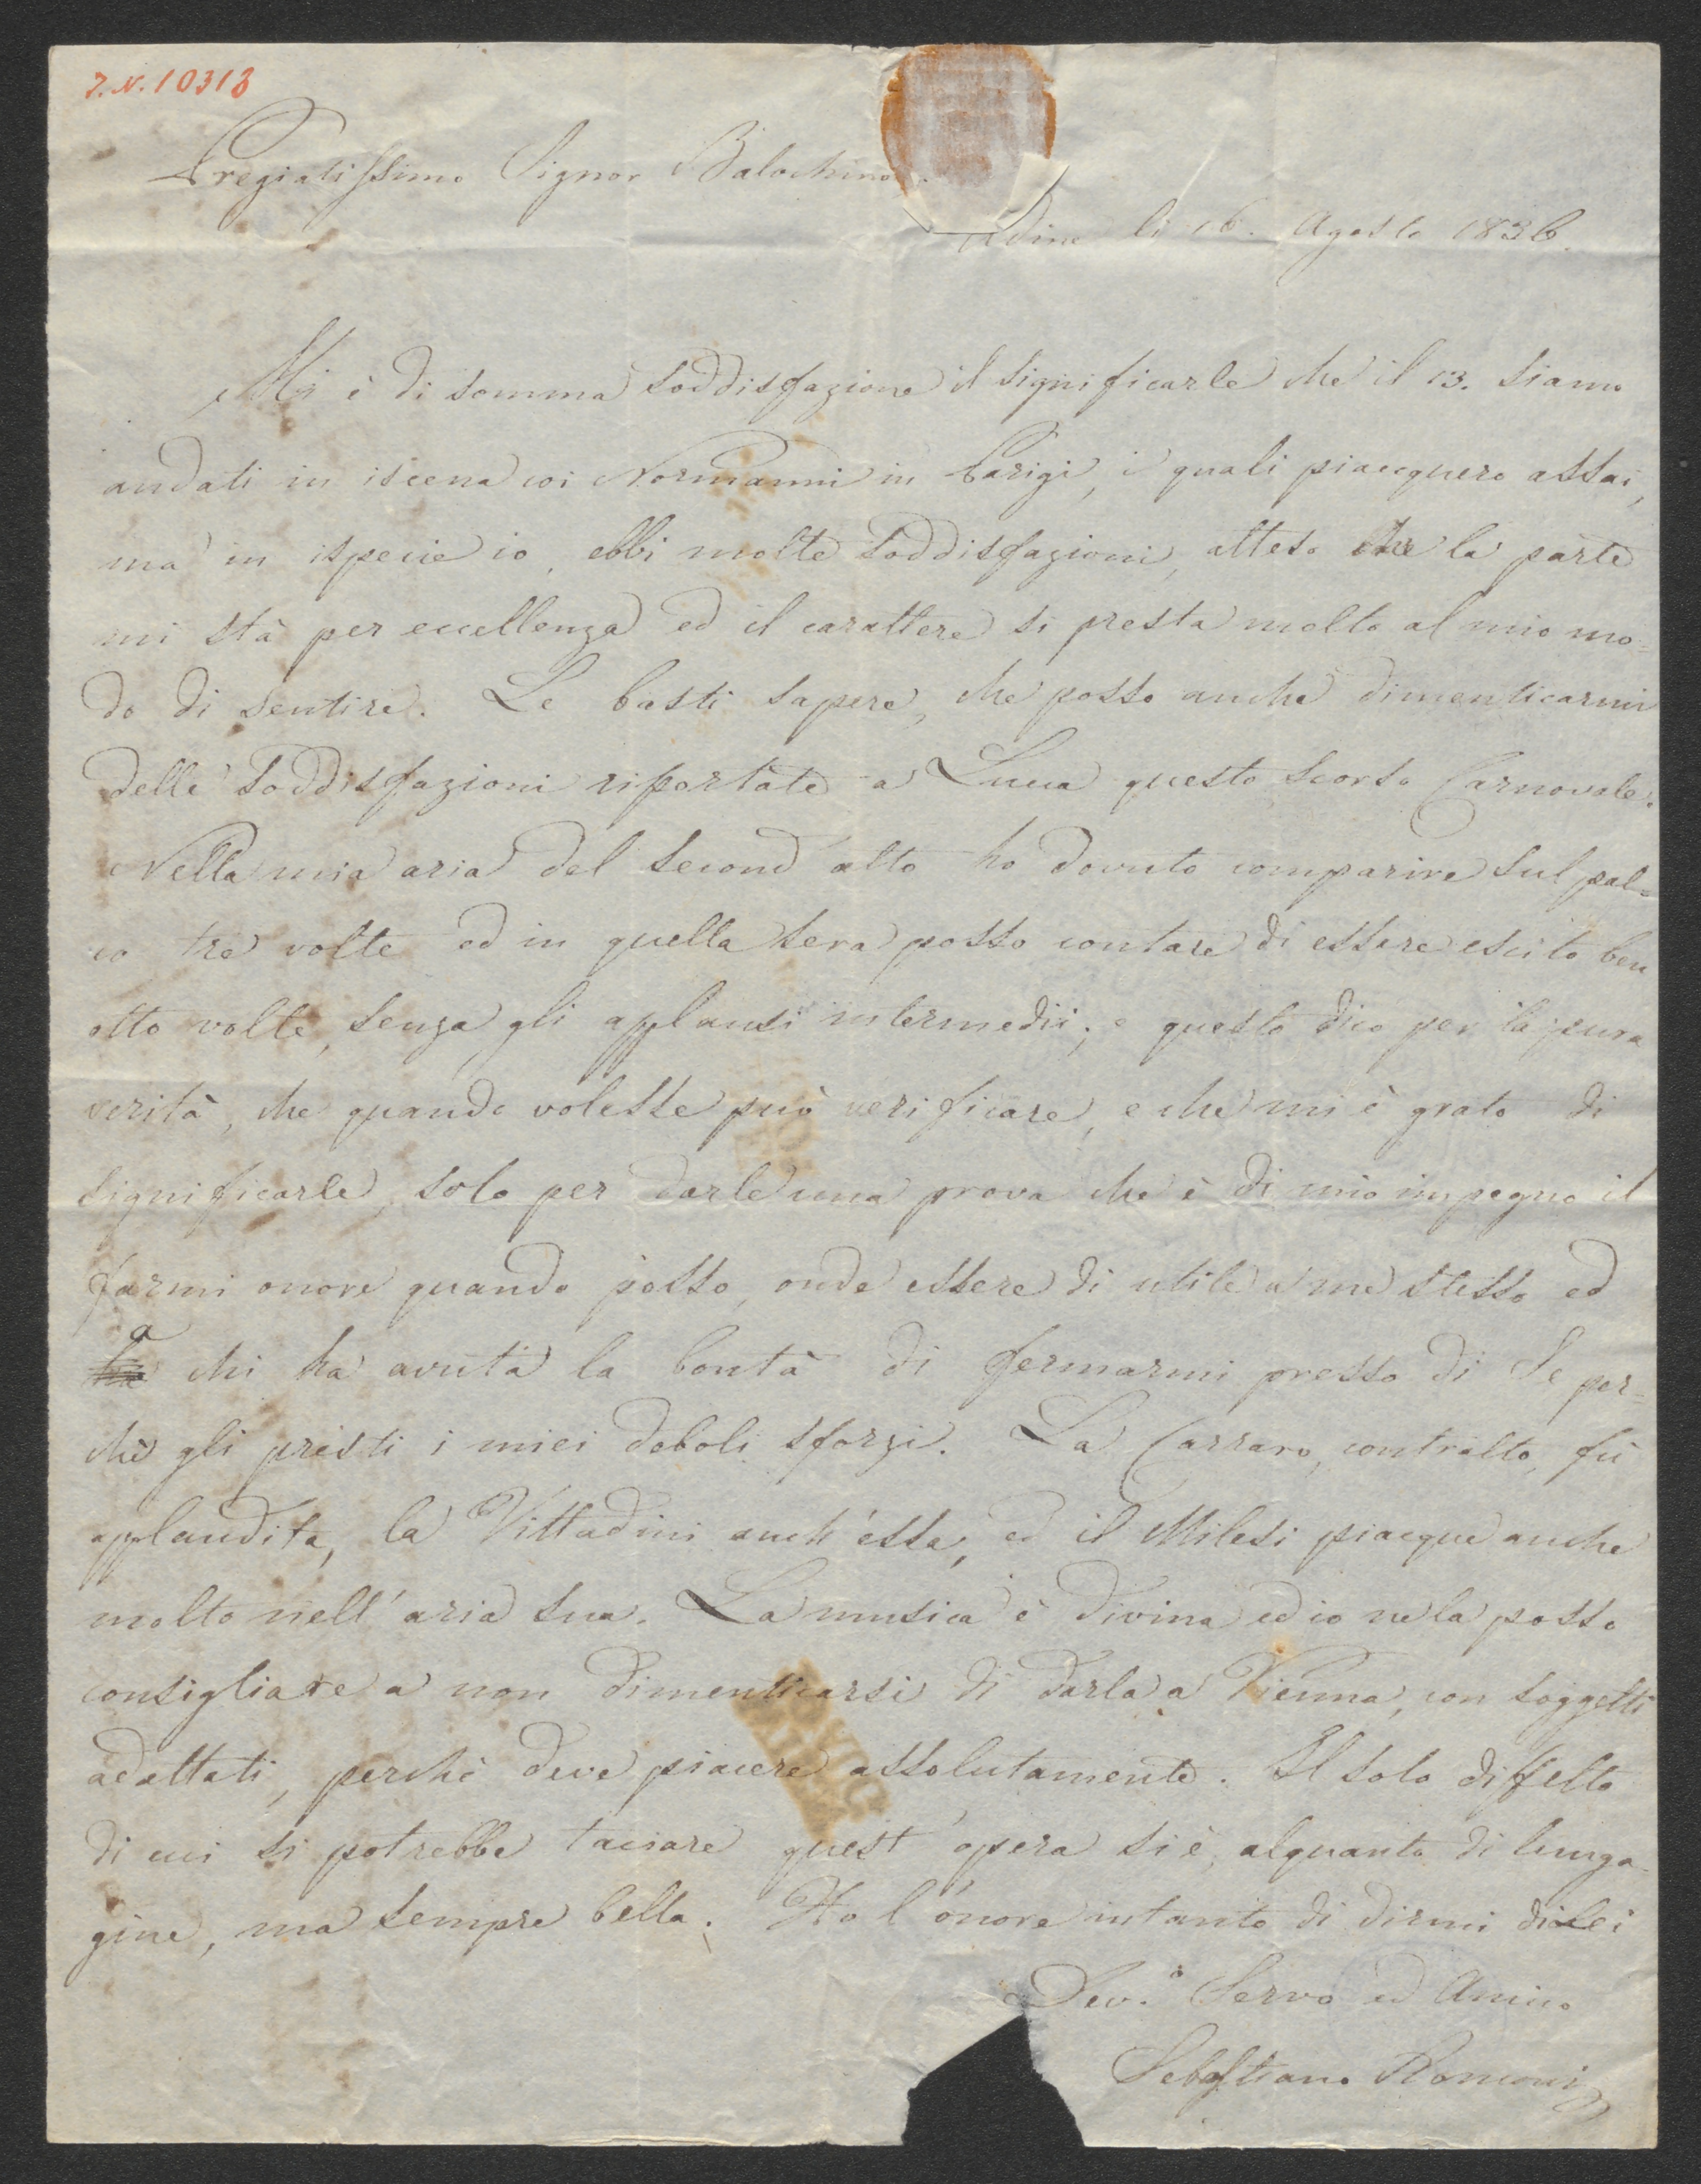 I. N. 10313
Pregiatissimo Signor Balochino.
Udine li 16. Agosto 1836.
Mi è di somma soddisfazione il significarle che il 13. siamo
andati in iscena coi Normanni in Parigi, i quali piacquero assai,
ma in ispecie io, ebbi molte soddisfazioni, atteso che la parte
mi stà per eccellenza ed il carattere si presta molto al mio mo=
do di sentire. Le basti sapere, che posso anche dimenticarmi
delle soddisfazioni riportate a Lucca questo scorso Carnovale.
Nella mia aria del second'atto ho dovuto comparire sul pal=
co tre volte ed in quella sera posso contare di essere escito ben
otto volte, senza gli applausi intermedii; e questo dico per la pura
verità, che quando volesse può verificare, e che mi è grato di
significarle, solo per darle una prova che è di mio impegno il
farmi onore quando posso, onde essere di utile a me stesso ed
a chi ha avuta la bontà di fermarmi presso di Se per=
chè gli presti i miei deboli sforzi. La Carraro, contralto, fù
applaudita, la Vittadini anch'essa, ed il Milesi piacque anche
molto nell'aria sua. La musica è divina ed io ne la posso
consigliare a non dimenticarsi di darla a Vienna, con soggetti
adattati, perchè deve piacere assolutamente. Il solo diffetto
di cui si potrebbe tacciare quest'opera si è, alquanto di lunga=
gine, ma sempre bella. Ho l'onore intanto di dirmi di Lei
Dev.o Servo ed Amico
Sebastiano Ronconi